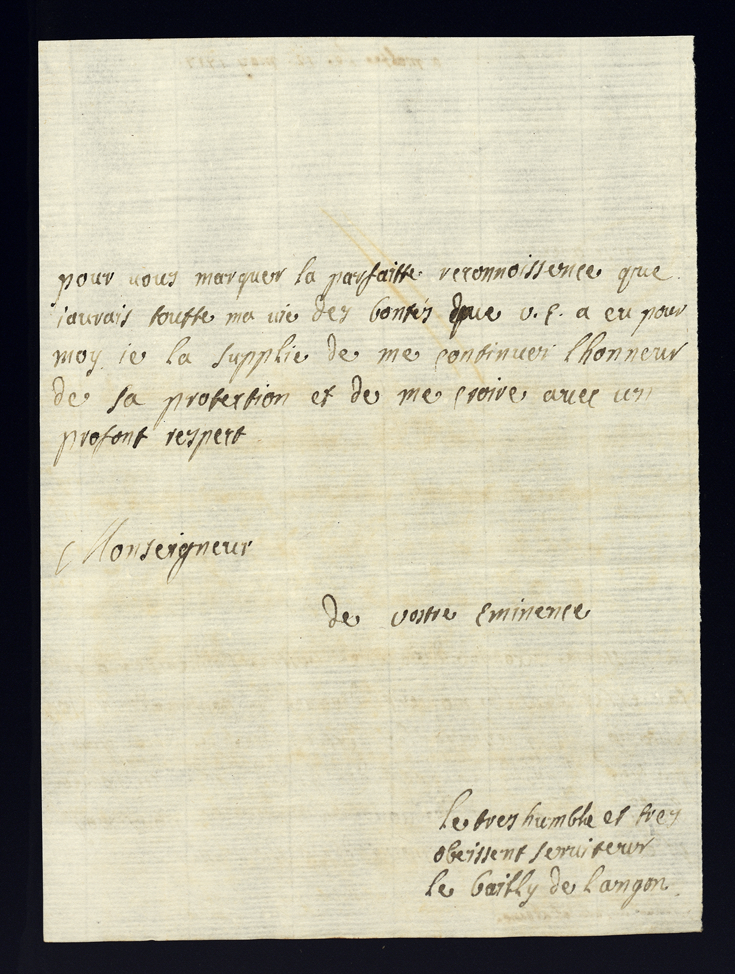 pour vous marquer la parfaitte reconnoissence que
iaurais toutte ma vie des bontés que v. E. a eu pour
moy ie la supplie de me continuer lhonneur
de sa protection et de me croire avec un
profont respect
Monseigneur
de vostre Eminence
le tres humble et tres
obeissent serviteur
le bailly de langon